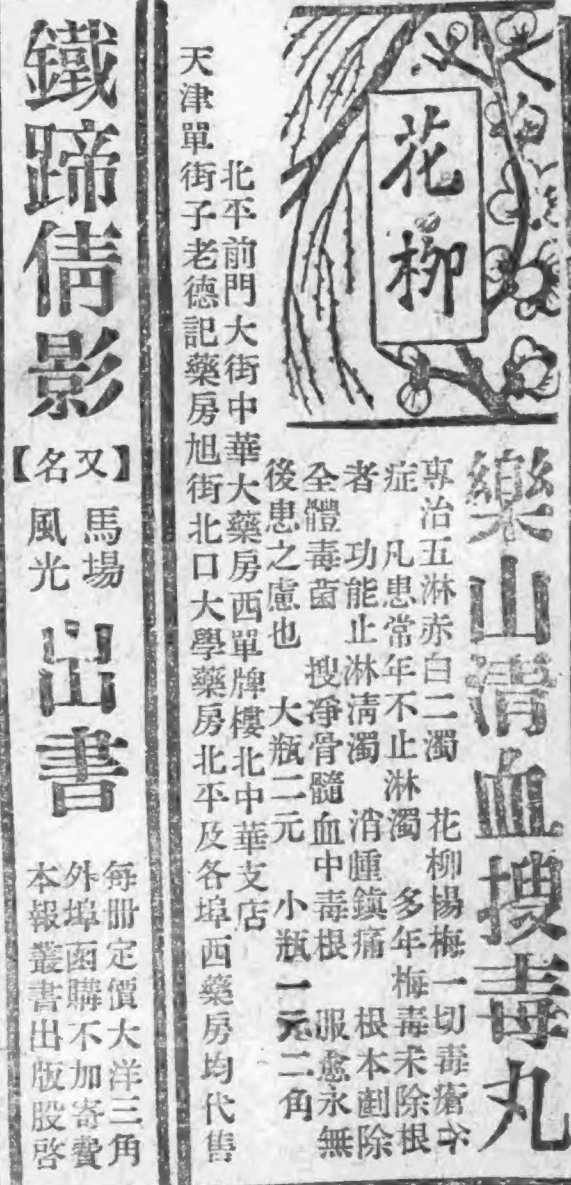 花柳
樂山清血搜毒丸
專治五淋赤白二濁 花柳楊梅一切毒瘡
症 凡患常年不止淋濁 多年梅毒未除根
者 功能止淋清濁 消腫鎮痛 根本剷除
全體毒菌 搜淨骨髓血中毒根 服愈永無
後患之慮也 大瓶二元 小瓶一元二角
北平前門大街中華大藥房西單牌樓北中華支店
天津單街子老德記藥房旭街北口大學藥房北平及各埠西藥房均代售
鐵蹄倩影
【又名】
馬場
風光
出書
每冊定價大洋三角
外埠函購不加寄費
本報叢書出版股啓